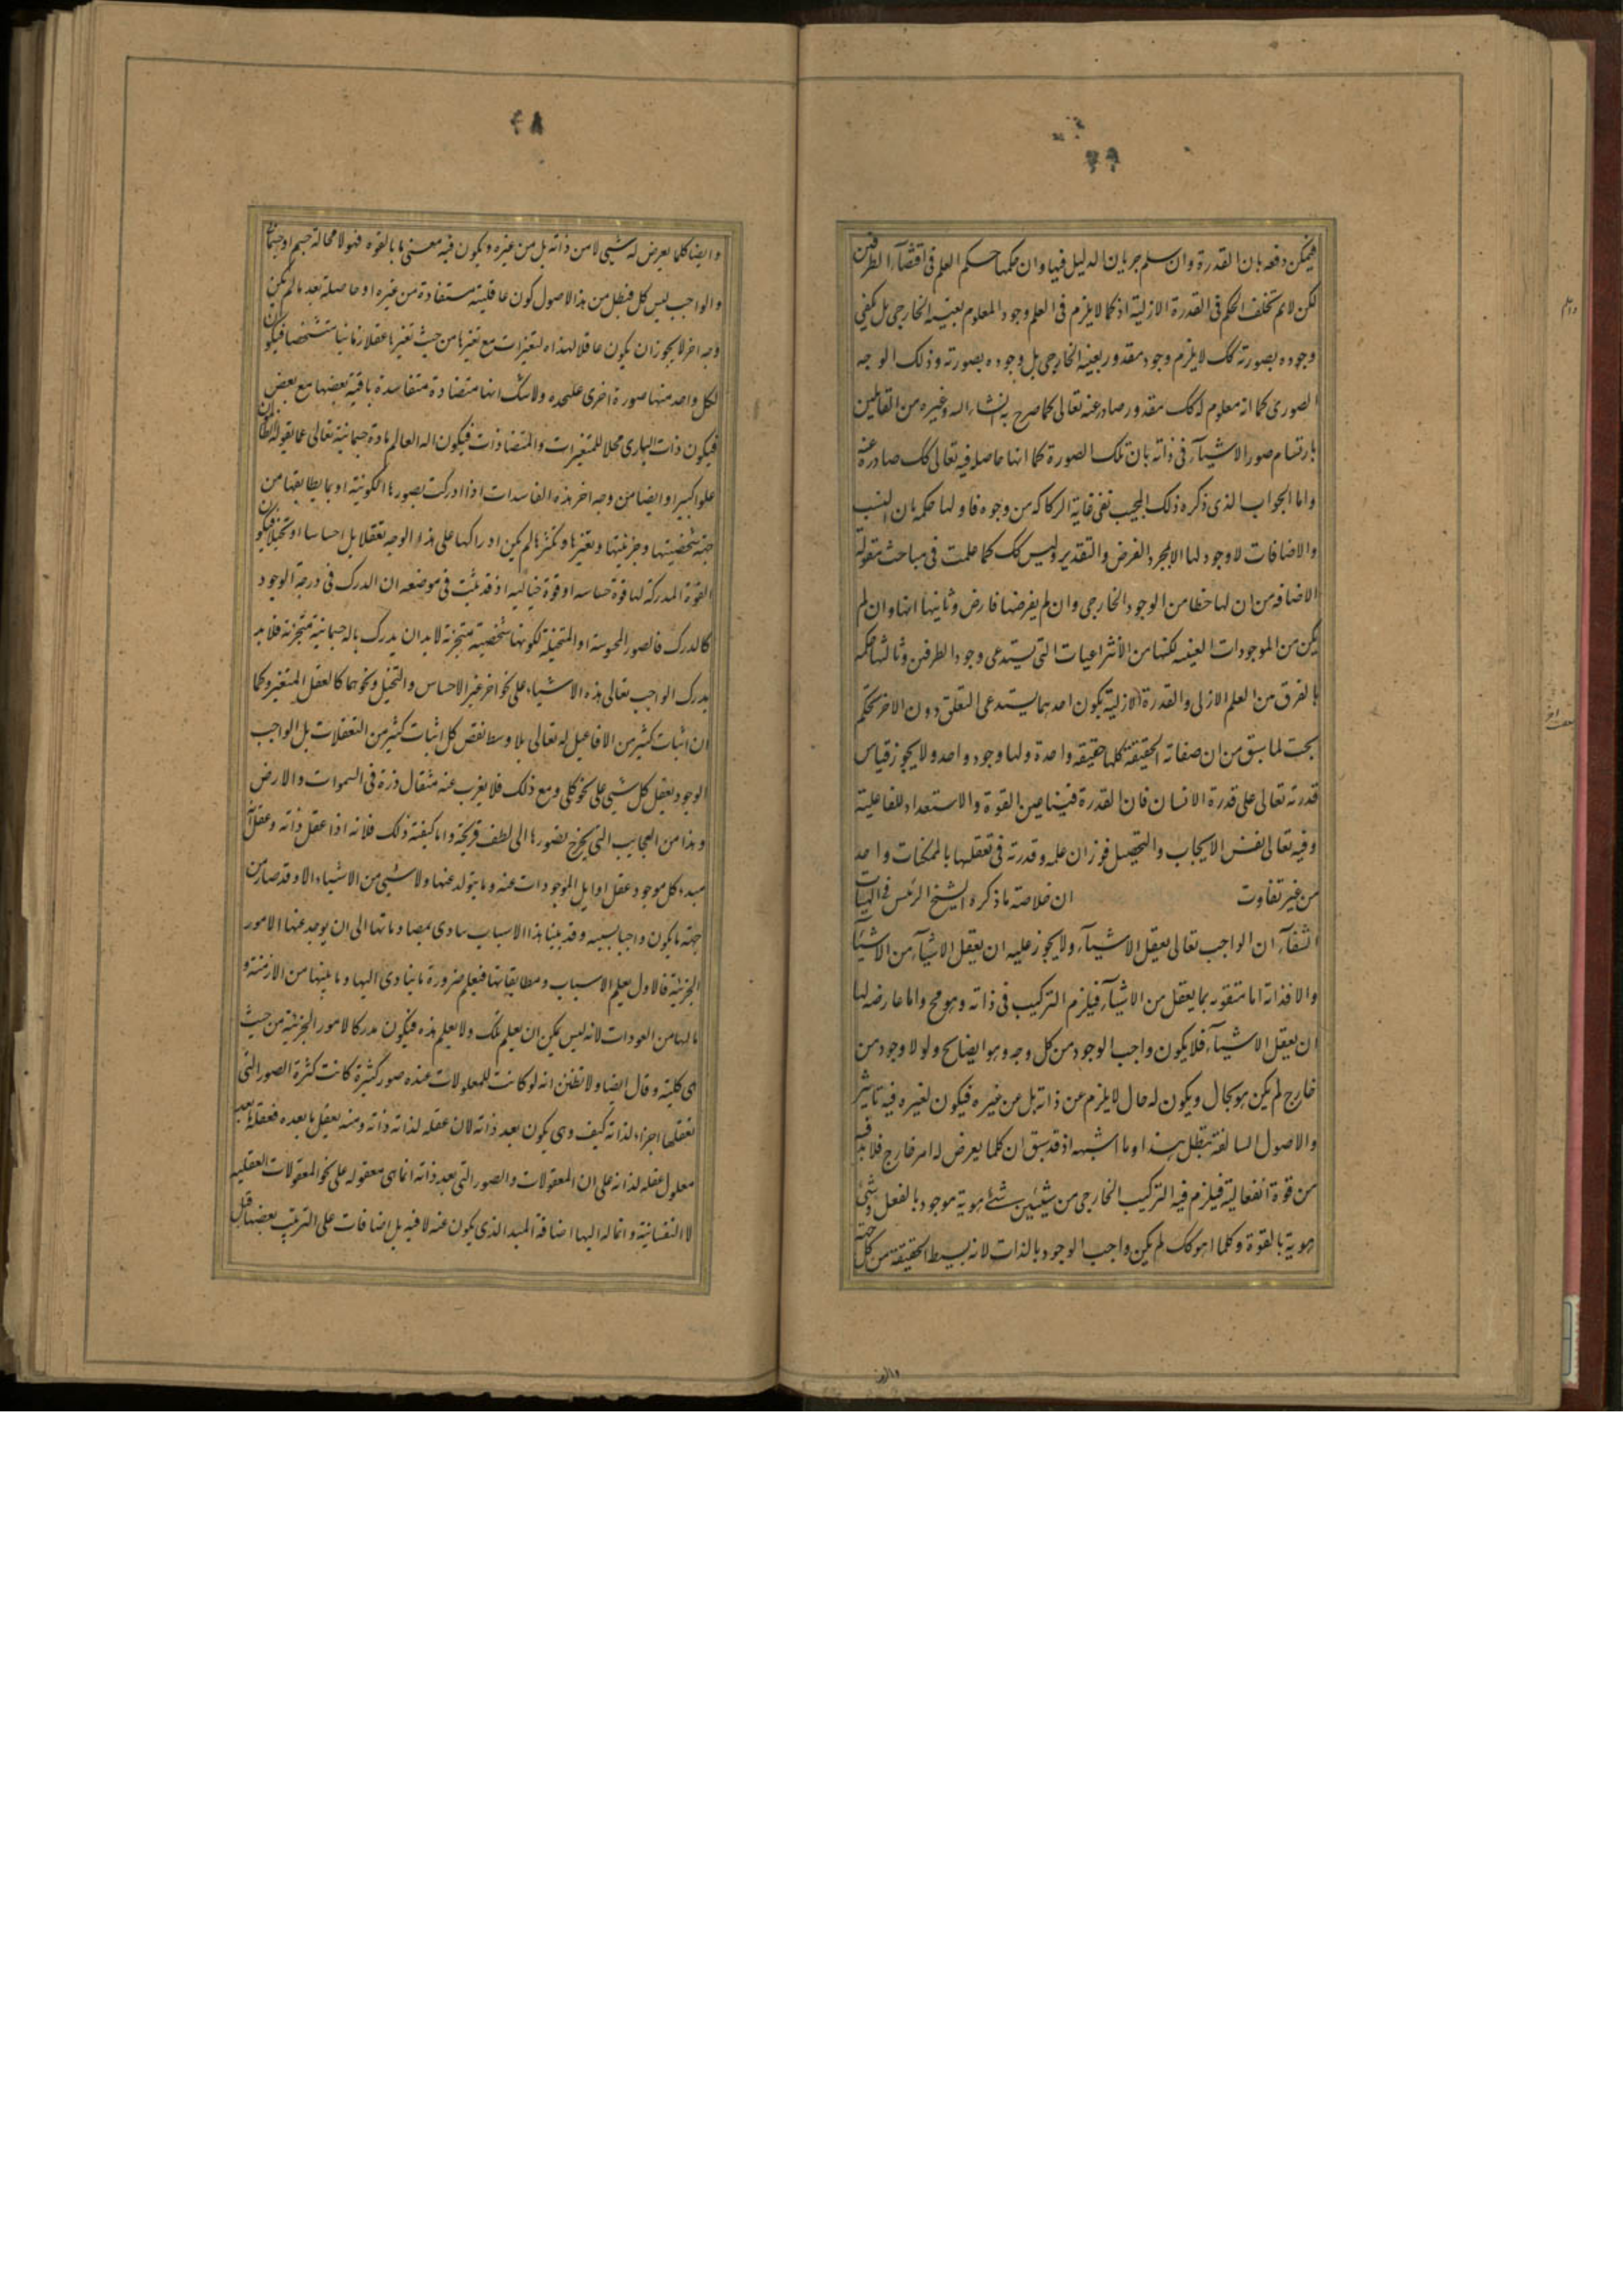 ۴۹
فيمكن دفعه بان القدرة وان سلم جريان الدليل فيها وان حكمها حكم العلم فى اقتضآء الطرفين
لكن لانم تخلف الحكم فى القدرة الازلية اذ كما لايلزم فى العلم وجود المعلوم بعينه الخارجى بل يكفى
وجوده بصورته كك لايلزم وجود مقدور بعينه الخارجى بل وجوده بصورته وذلك الوجه
الصورى كما انه معلوم له كك مقدور صادر عنه تعالى كما صرح به غيره من القائلين
بارتسام صور الاشيآء فى ذاته بان تلك الصورة كما انها حاصله فيه تعالى كك صادره عنه
واما الجواب الذى ذكره ذلك المجيب نفى غاية الركاكه من وجوه فاولها حكمه بان النسب
والاضافات لاوجود لها الابمجرد الفرض والتقدير وليس كك كما علمت فى مباحث مقولة
الاضافه من ان لها حظا من الوجود الخارجى وان لم يفرضها فارض وثانيها انها وان لم
يكن من الموجودات العينيه لكنها من الانتزاعيات التى يستدعى وجود الطرفين وثالثها حكمه
بالفرق من العلم الازلى والقدرة الازلية بكون احدهما يستدعى التعلق دون الاخر تحكم
بحت لما سبق من ان صفاته الحقيقة كلها حقيقه واحدة ولها وجود واحد ولا يجوز قياس
قدرته تعالى على قدرة الانسان فان القدرة فينا عين القوة والاستعداد للفاعلية
وفيه تعالى نفس الايجاب والتحصيل فوزان علمه وقدرته فى تعقلها بالممكنات واحد
من غير تفاوت ان خلاصة ماذكره الشيخ الرئيس فى الهيات
الشفآء ان الواجب تعالى يعقل الاشيآء ولايجوز عليه ان يعقل الاشيآء من الاشيآ
والا فذاته اما متقومه بما يعقل من الاشيآء فيلزم التركيب فى ذاته وهو مح واما عارضه لها
ان يعقل الاشيآء فلا يكون واجب الوجود من كل وجه وهو ايضا مح ولولا وجود من
خارج لم يكن هو بحال ويكون له حال لايلزم عن ذاته بل عن غيره فيكون لغيره فيه تاثير
والاصول السالفة تبطل هذا وما اشبهه اذ قد سبق ان كلما يعرض له امر خارج فلابد فيه
من قوة انفعالية فيلزم فيه التركيب الخارجى من شيئين شئ هوية موجود بالفعل وشئ
هوية بالقوة وكلما هو كك لم يكن واجب الوجود بالذات لانه بسيط الحقيقة من كل جهة
۴۸
وايضا كلما يعرض له شيى لا من ذاته بل من غيره ويكون فيه معنى ما بالقوه فهو لا محالة جسم او جسمانى
والواجب ليس كك فبطل من هذا الاصول كون عاقليته مستفادة من غيره او حاصله بعد مالم يكن
وجه اخر لا يجوز ان يكون عاقلا لهذه المتغيرات مع تغيرها من حيث تغيرها عقلا زمانيا متشخصا فيكون
لكل واحد منها صورة اخرى علىحده ولاشك انها متضادة متفاسدة باقية بعضها مع بعض
فيكون ذات البارى محلا للمتغيرات والمتضادات فيكون اله العالم مادة جسمانية تعالى عما يقوله الظالمون
علوا كبيرا وايضا من وجه اخر هذه الفاسدات اذا ادركت بصورها الكونية او بما يطابقها من
جهة شخصيتها وجزئيتها وتغيرها وتكثرها لم يكن ادراكها على هذا الوجه تعقلا بل احساسا او تخيلا فيكون
القوة المدركة لها قوة حساسه او قوة خياليه اذ قد ثبت فى موضعه ان المدرك فى درجة الوجود
كالمدرك فالصور المحسوسة او المتخيلة لكونها شخصية متجزئة لابد ان يدرك باله جسمانية متجزئة فلابد
يدرك الواجب تعالى هذه الاشياء على نحو اخر غير الاحساس والتخيل ونحوهما كالعقل المتغير وكما
ان اثبات كثير من الافاعيل له تعالى بلا وسط نقص كل اثبات كثير من التعقلات بل الواجب
الوجود يعقل كل شيى على نحو كلى ومع ذلك فلا يعزب عنه مثقال ذرة فى السموات والارض
وهذا من العجايب التى يحوج تصورها الى لطف قريحة واما كيفية ذلك فلانه اذا عقل ذاته وعقل انه
مبدء كل موجود عقل اوايل الموجودات عنه وما يتولد عنها ولا شيى من الاشياء الا وقد صار من
جهة ما يكون واجبا بسببه وقد بينا هذا الاسباب يتادى بمصادماتها الى ان يوجد عنها الامور
الجزئية فالاول يعلم الاسباب ومطابقاتها فيعلم ضرورة ما يتادى اليها وما بينها من الازمنة و
مالها من العودات لانه ليس يمكن ان يعلم تلك ولا يعلم هذه فيكون مدركا لامور الجزئية من حيث
هى كلية وقال ايضا ولا تظنن انه لو كانت للمعلولات عنده صور كثيرة كانت كثرة الصور التى
تعقلها اجزاء لذاته كيف وهى يكون بعد ذاته لان عقله لذاته ذاته ومنه يعقل ما بعده فعقله لما بعد
معلول عقله لذاته على ان المعقولات والصور التى بعد ذاته انما هى معقوله على نحو المعقولات العقليه
لا النفسانية وانما له اليها اضافة المبدا الذى يكون عنه لا فيه بل اضافات على الترتيب بعضها قبل